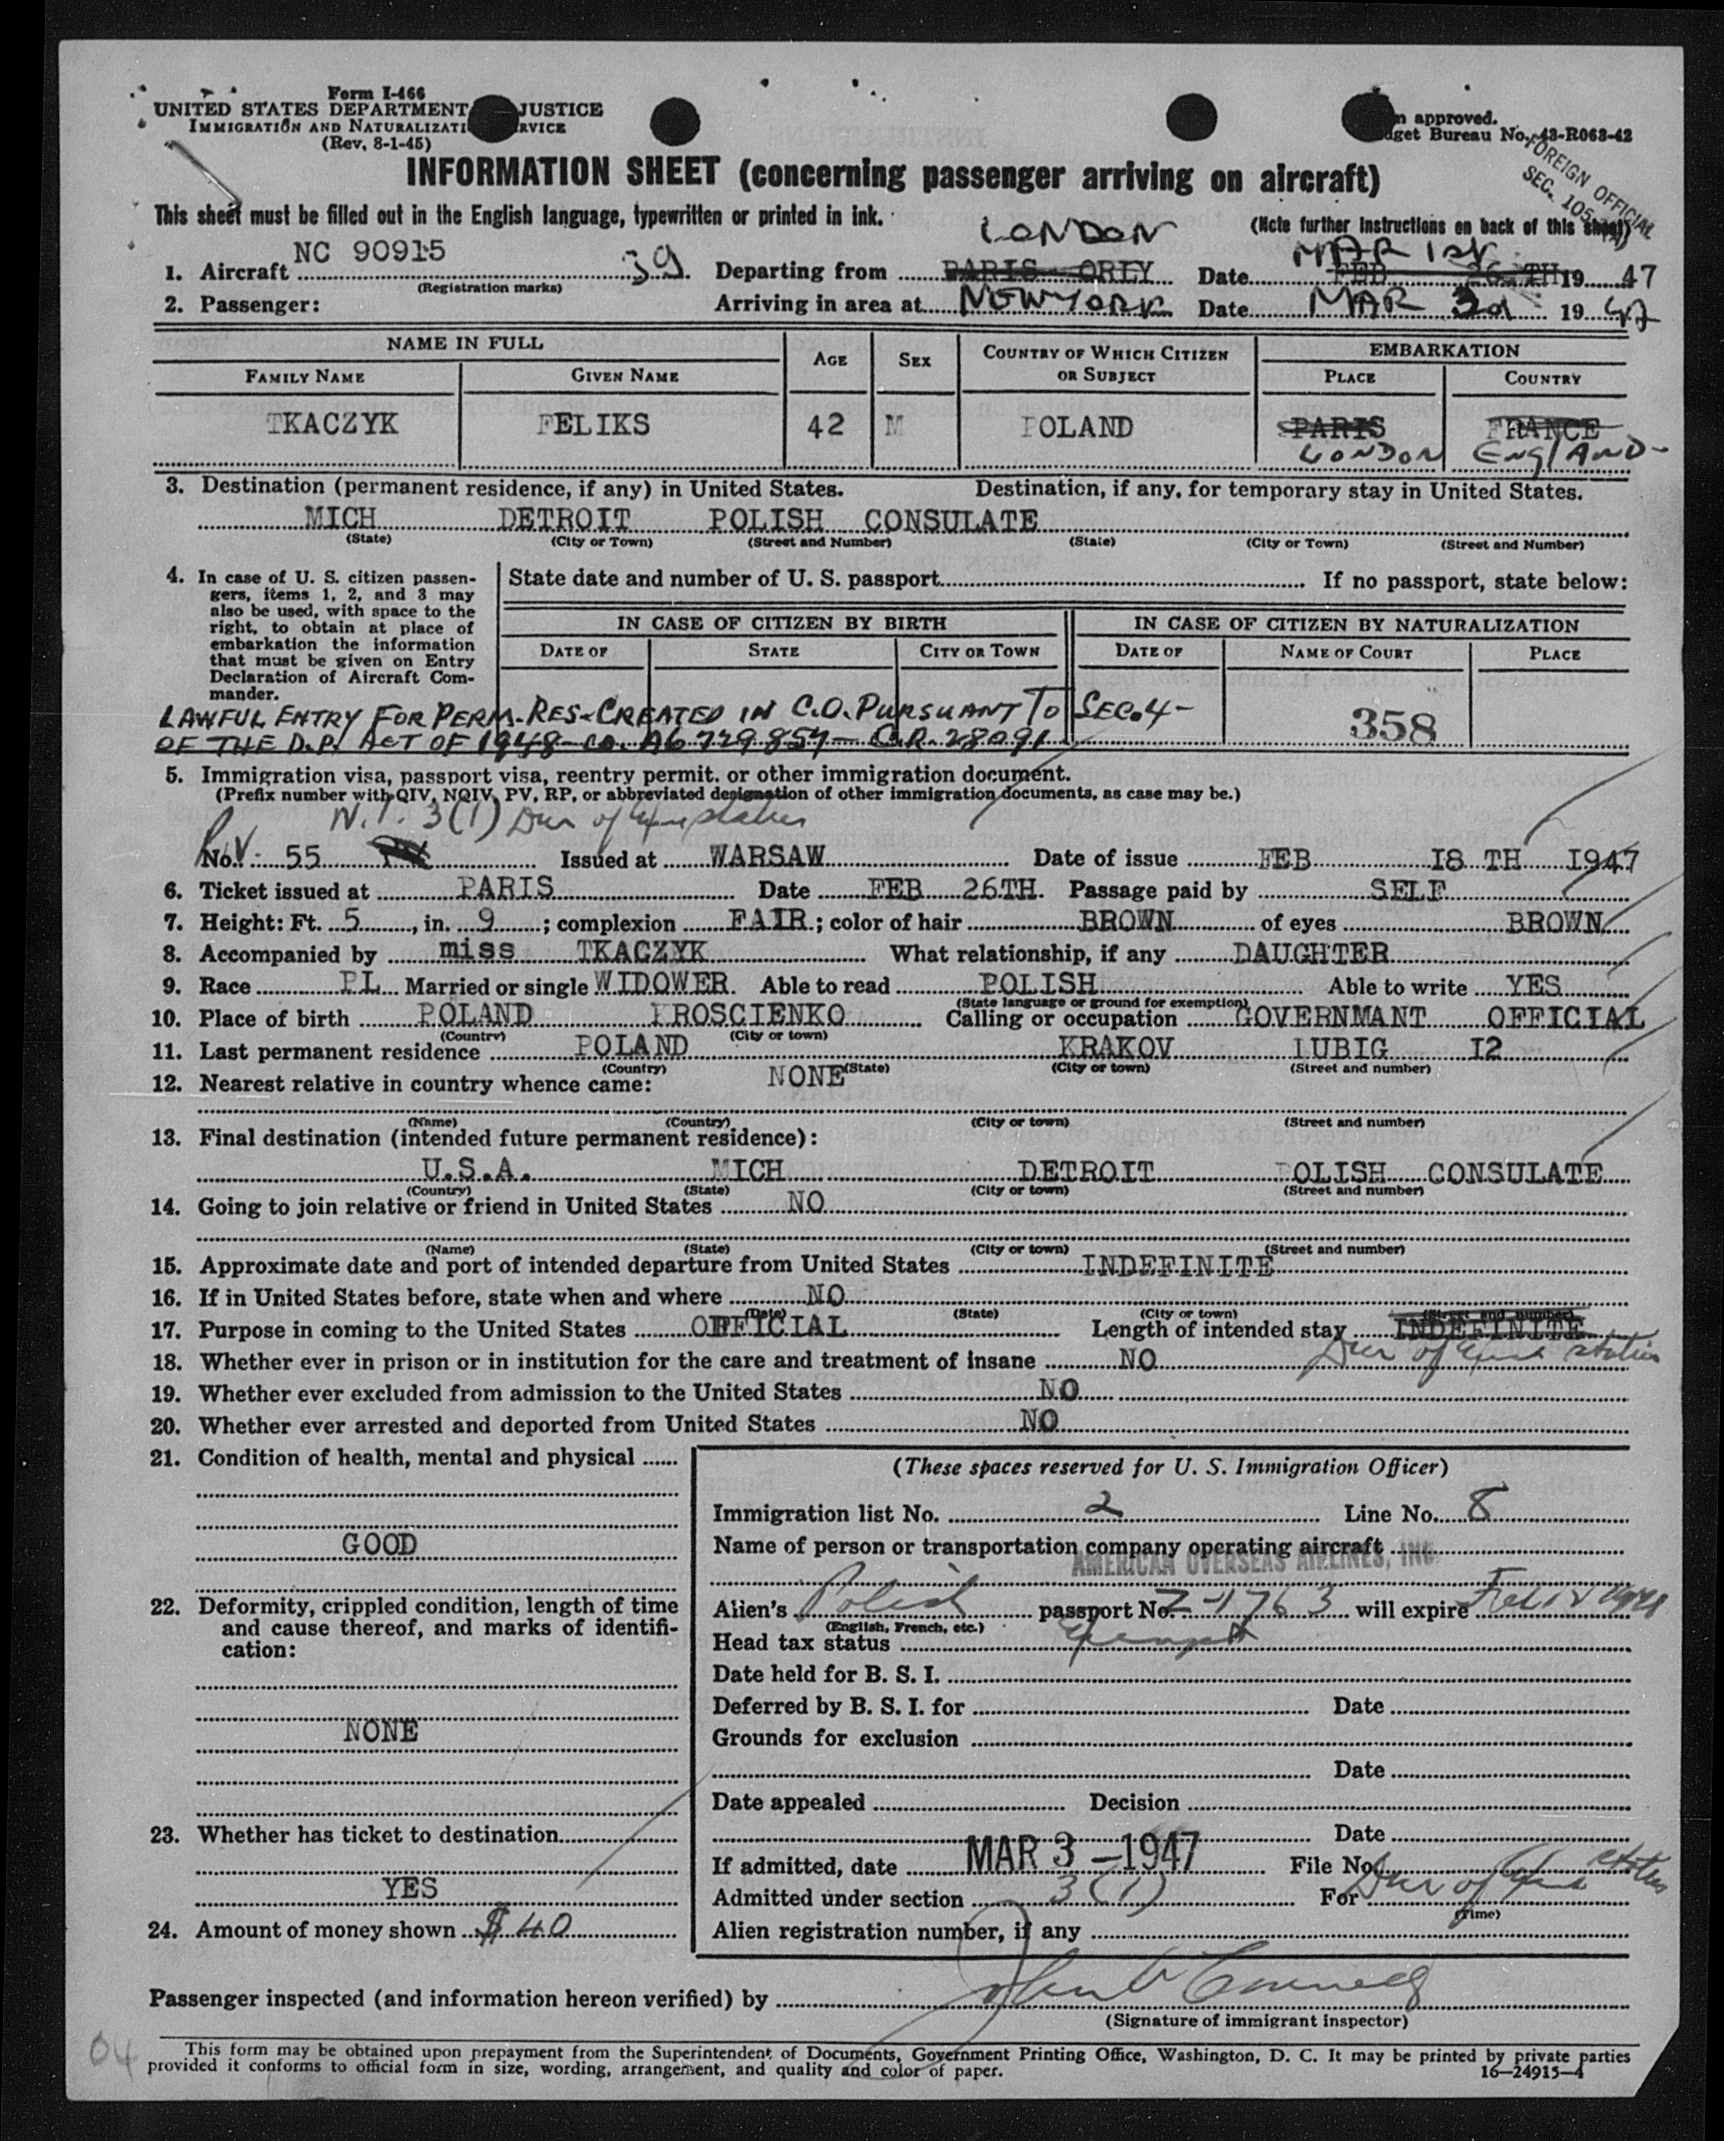 Form I-466
UNITED STATES DEPARTMENT JUSTICE
IMMIGRATION AND NATURALIZATI RVICE
(Rev. 8-1-45)
n approved.
get Bureau No. 43-R063-42
FOREIGN OFFICIAL
SEC. 105
INFORMATION SHEET (concerning passenger arriving on aircraft)
This sheet must be filled out in the English language, typewritten or printed in ink.
(Note further instructions on back of this sheet)
LONDON
MAR 1st
1. Aircraft NC 90915 39. Departing from PARIS ORLY Date FEB 26 TH 19 47
(Registration marks)
2. Passenger: Arriving in area at NEW YORK Date MAR 3d 19 47
NAME IN FULL AGE SEX COUNTRY OF WHICH CITIZEN OR SUBJECT EMBARKATION
FAMILY NAME GIVEN NAME PLACE COUNTRY
TKACZYK FELIKS 42 M POLAND PARIS FRANCE
LONDON ENGLAND-
3. Destination (permanent residence, if any) in United States. Destination, if any, for temporary stay in United States.
MICH DETROIT POLISH CONSULATE
(State) (City or Town) (Street and Number) (State) (City or Town) (Street and Number)
4. In case of U. S. citizen passen-
gers, items 1, 2, and 3 may
also be used, with space to the
right, to obtain at place of
embarkation the information
that must be given on Entry
Declaration of Aircraft Com-
mander.
State date and number of U. S. passport If no passport, state below:
IN CASE OF CITIZEN BY BIRTH IN CASE OF CITIZEN BY NATURALIZATION
DATE OF STATE CITY OR TOWN DATE OF NAME OF COURT PLACE
LAWFUL ENTRY FOR PERM. RES. CREATED IN C.O. PURSUANT TO SEC. 4-
OF THE D.P. ACT OF 1948-CO. A6 729 857- C.R. 28091
358
5. Immigration visa, passport visa, reentry permit, or other immigration document.
(Prefix number with QIV, NQIV, PV, RP, or abbreviated designation of other immigration documents, as case may be.)
3(1) Dur of status
P.V. No. 55 Issued at WARSAW Date of issue FEB I8 TH I947
6. Ticket issued at PARIS Date FEB 26TH. Passage paid by SELF
7. Height: Ft. 5, in. 9; complexion FAIR; color of hair BROWN of eyes BROWN
8. Accompanied by miss TKACZYK What relationship, if any DAUGHTER
9. Race PL Married or single WIDOWER. Able to read POLISH Able to write YES
(State language or ground for exemption)
10. Place of birth POLAND KROSCIENKO Calling or occupation GOVERNMANT OFFICIAL
(Country) (City or town)
11. Last permanent residence POLAND KRAKOV LUBIG I2
(Country) (State) (City or town) (Street and number)
12. Nearest relative in country whence came: NONE
(Name) (Country) (City or town) (Street and number)
13. Final destination (intended future permanent residence):
U.S.A. MICH DETROIT POLISH CONSULATE
(Country) (State) (City or town) (Street and number)
14. Going to join relative or friend in United States NO
(Name) (State) (City or town) (Street and number)
15. Approximate date and port of intended departure from United States INDEFINITE
16. If in United States before, state when and where NO
(Date) (State) (City or town) (Street and number)
17. Purpose in coming to the United States OFFICIAL Length of intended stay INDEFINITE
Dur of status
18. Whether ever in prison or in institution for the care and treatment of insane NO
19. Whether ever excluded from admission to the United States NO
20. Whether ever arrested and deported from United States NO
21. Condition of health, mental and physical
GOOD
22. Deformity, crippled condition, length of time
and cause thereof, and marks of identifi-
cation:
NONE
23. Whether has ticket to destination
YES
24. Amount of money shown $ 40
(These spaces reserved for U. S. Immigration Officer)
Immigration list No. 2 Line No. 8
Name of person or transportation company operating aircraft
AMERICAN OVERSEAS AIRLINES, INC.
Alien's Polish passport No. Z-1763 will expire Feb 18 1948
(English, French, etc.)
Head tax status Exempt
Date held for B. S. I.
Deferred by B. S. I. for Date
Grounds for exclusion
Date
Date appealed Decision
Date
If admitted, date MAR 3 - 1947 File No.
Admitted under section 3(1) For Dur of status
(Time)
Alien registration number, if any
Passenger inspected (and information hereon verified) by
(Signature of immigrant inspector)
04
This form may be obtained upon prepayment from the Superintendent of Documents, Government Printing Office, Washington, D. C. It may be printed by private parties
provided it conforms to official form in size, wording, arrangement, and quality and color of paper.
16-24915-4